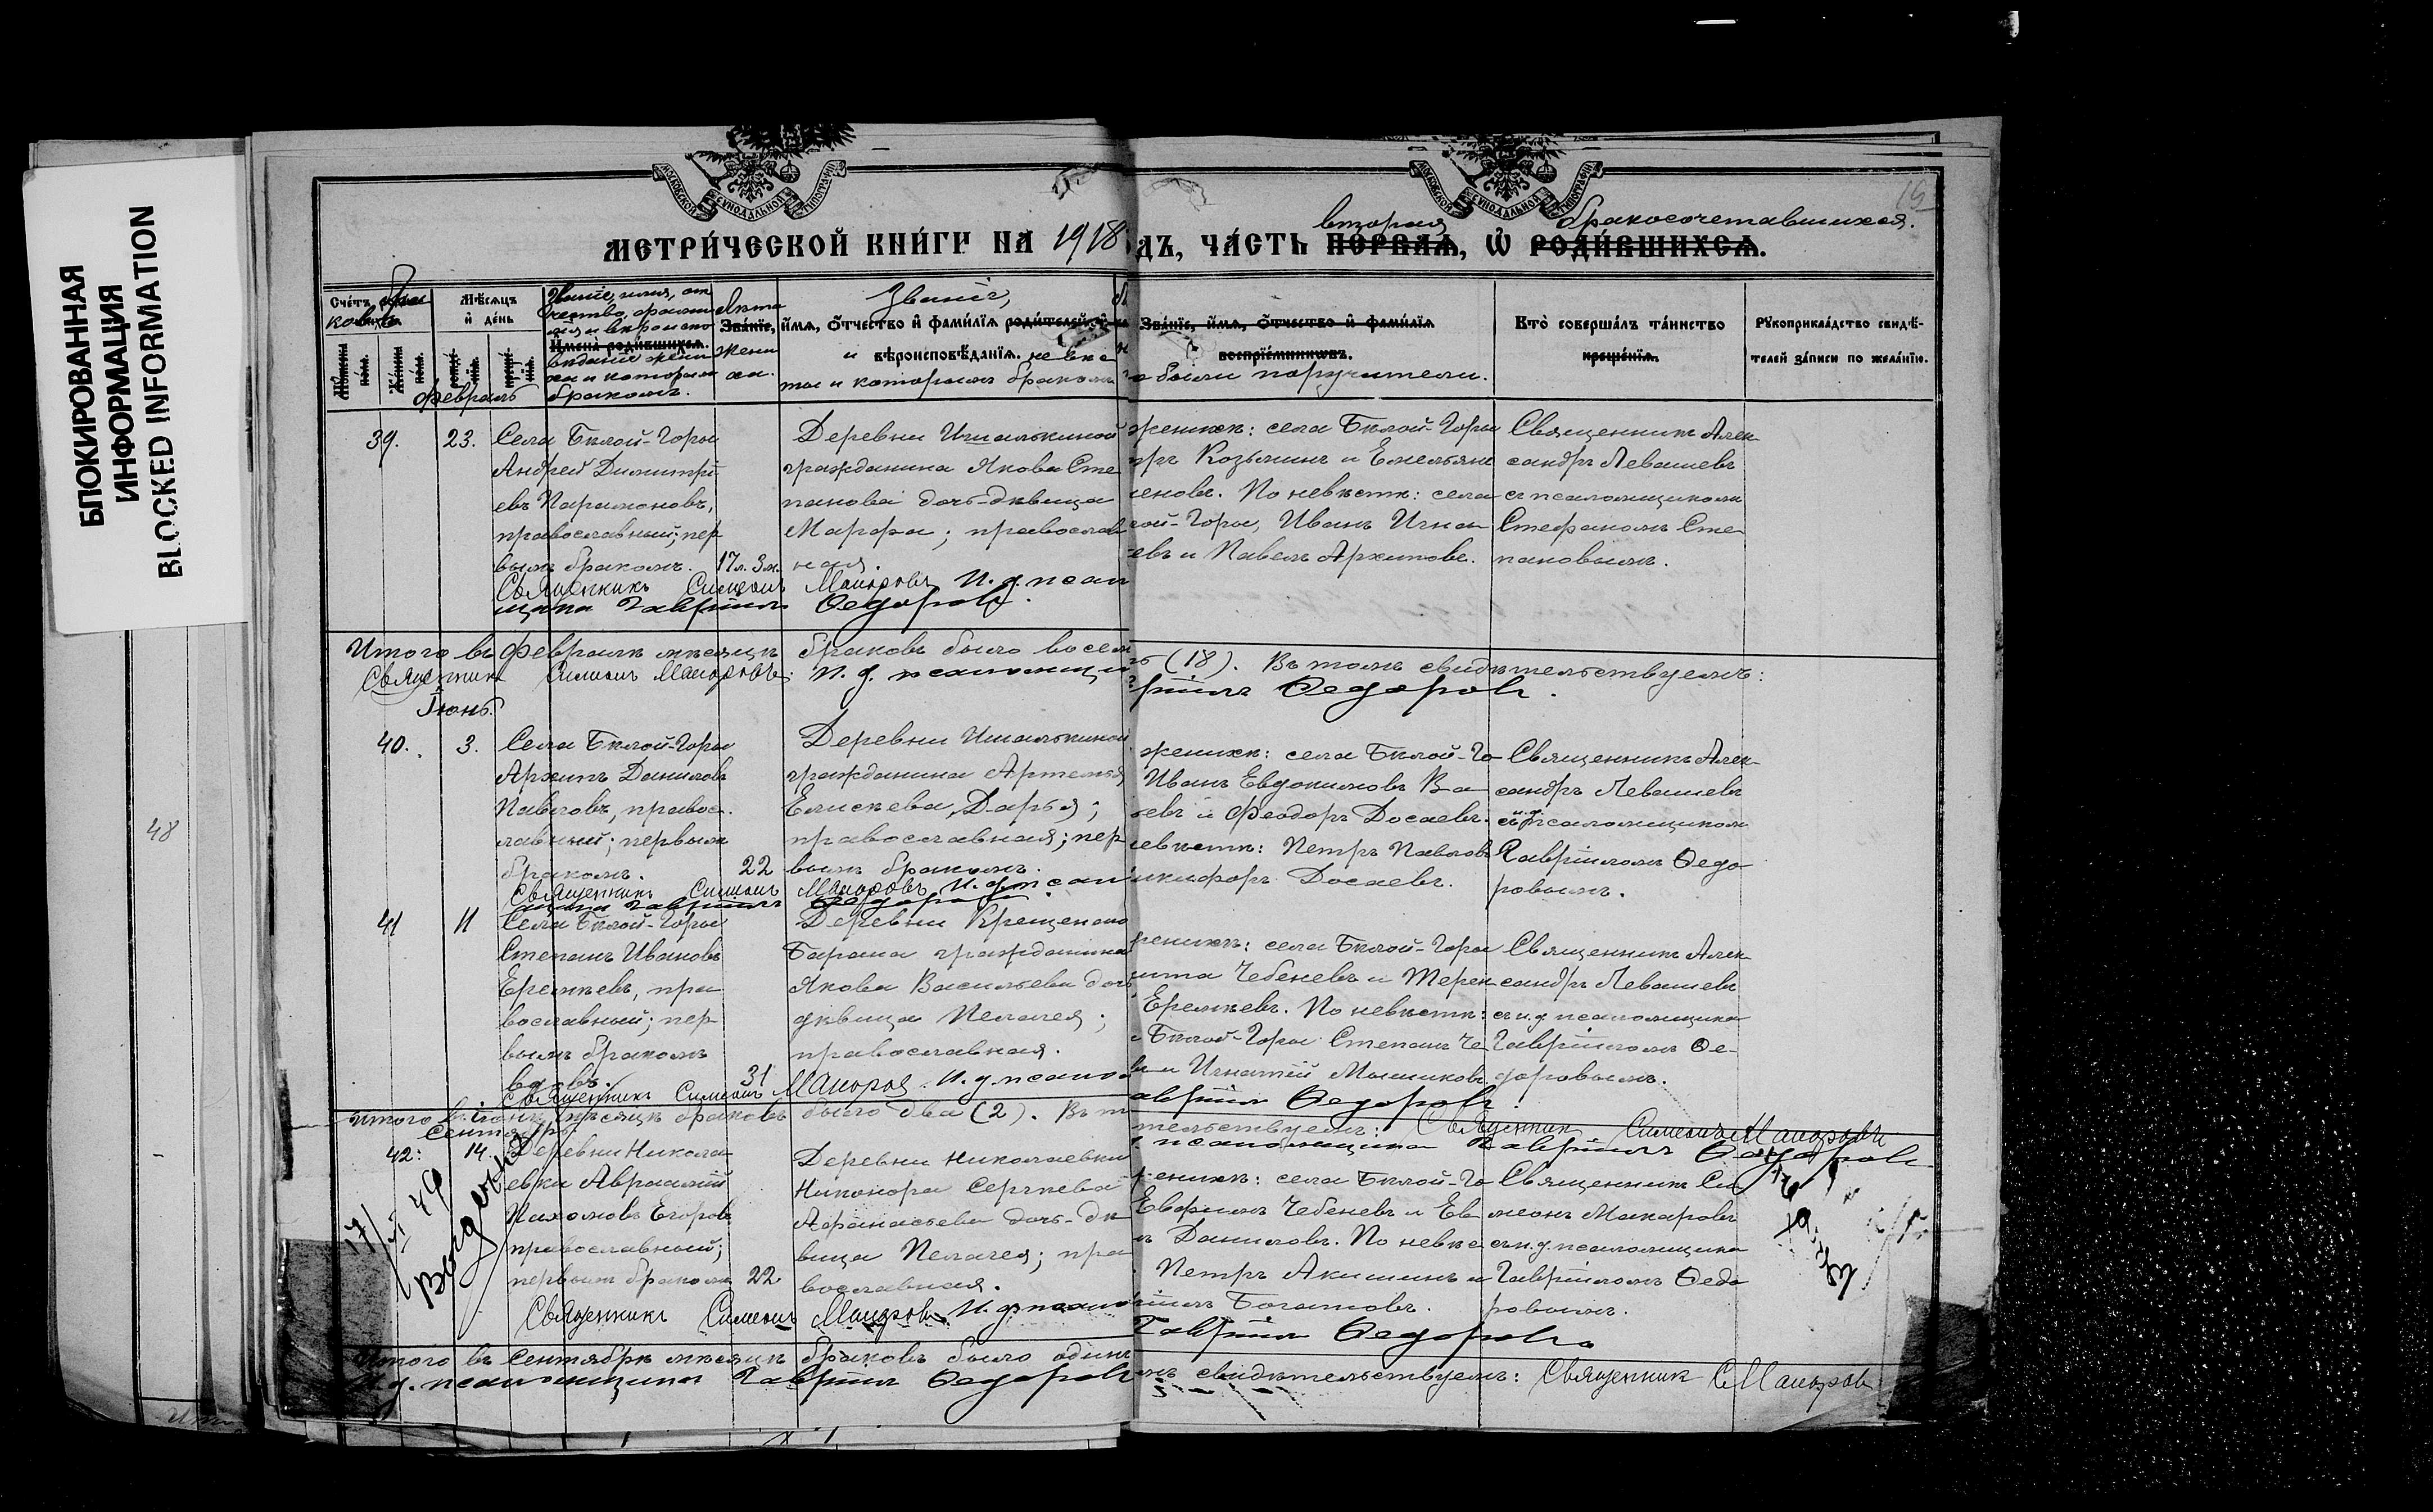 БЛОКИРОВАННАЯ
ИНФОРМАЦИЯ
BLOCKED INFORMATION
48
МОСКОВСКОЙ СѴНОДАЛЬНОЙ ТИПОГРАФІИ
МОСКОВСКОЙ СѴНОДАЛЬНОЙ ТИПОГРАФІИ
15
вторая бракосочетавшихся.
МЕТРИ́ЧЕСКОЙ КНИ́ГИ НА 1918
ДЪ, ЧА́СТЬ ПЕ́РВАѦ, Ѡ҆ РОДИ́ВШИХСѦ.
Сче́тъ бра
ковъ
Мѣ́сяцъ
и҆ де́нь
Февраль
Званіе, имя, от
чество, фамилія
и вѣроиспо
Имена̀ роди́вшихся.
веданіе жени
ха и которымъ
бракомъ.
Лѣта
жени
ха.
Званіе,
Зва́нїе, и҆́мѧ, ѻ҆́тчество и҆ фами́лїѧ роди́телей
и вѣроисповѣ́данїѧ. невѣс
ты и которымъ бракомъ
Зва́нїе, и҆́мѧ, ѻ҆́тчество и҆ фами́лїѧ
воспрїе́мниковъ.
были поручители.
Кто̀ соверша́лъ та́инство
креще́нїѧ.
Рꙋкоприкла́дство свидѣ́-
телей за́писи по жела́нїю.
39. 23. Села Бѣлой-Горы
Андрей Димитрі
евъ Парамоновъ,
православный; пер
вымъ бракомъ. 17 л. 3 м.
Деревни Ишалькиной
гражданина Якова Сте
панова дочь-дѣвица
Марфа; православ
ная.
женихѣ: села Бѣлой-Горы
Козьминъ и Емельянъ
еновъ. По невѣстѣ: села
ой-Горы, Иванъ Игнат
евъ и Павелъ Архиповъ.
Священникъ Алек
сандръ Левашевъ
съ псаломщикомъ
Стефаномъ Сте
пановымъ.
Священникъ Симеонъ Макаровъ И. д. псалом
щика Гавріилъ Ѳедоровъ.
Итого въ Февралѣ мѣсяцѣ браковъ было восем
ь (18). Въ томъ свидѣтельствуемъ:
Священникъ Симеонъ Макаровъ. И. д. псаломщи
вріилъ Ѳедоровъ.
Іюнь.
40. 3. Села Бѣлой-Горы
Архипъ Даниловъ
Павловъ, правос
лавный; первымъ
бракомъ. 22
Деревни Ишалькиной
гражданина Артемья
Елисѣева, Дарья;
православная; пер
вымъ бракомъ.
женихѣ: села Бѣлой-Го
Иванъ Евдокимовъ Ва
евъ и Феодоръ Досаевъ.
евѣстѣ: Петръ Павловъ
икифоръ Досаевъ.
Священникъ Алек
сандръ Левашевъ
съ и.д. псаломщикомъ
Гавріиломъ Ѳедо
ровымъ.
Священникъ Симеонъ Макаровъ И. д. псалом
щика Гавріилъ Ѳедоровъ.
41 11 Села Бѣлой-Горы
Степанъ Ивановъ
Еремѣевъ, пра
вославный; пер
вымъ бракомъ
31
Деревни Крещенаго
Барана гражданина
Якова Васильева дочь
дѣвица Пелагея;
православная.
женихѣ: села Бѣлой-Горы
Чебеневъ и Терен
Еремѣевъ. По невѣстѣ:
Бѣлой-Горы Степанъ Че
въ и Игнатій Мышиковъ.
Священникъ Алек
сандръ Левашевъ
съ и.д. псаломщика
Гавріиломъ Ѳе-
доровымъ.
Священникъ Симеонъ Макаровъ. И. д. псалом
авріилъ Ѳедоровъ.
Итого въ Іюнѣ мѣсяцѣ браковъ было два (2). Въ т
тельствуемъ: Священникъ Симеонъ Макаровъ
псаломщика Гавріилъ Ѳедоровъ
Сентябрь
42. 14. Деревни Никола
евки Авраамій
Пахомовъ Егоровъ
православный;
первымъ бракомъ 22
Деревни Николаевки
Никонора Сергѣева
Афанасьева дочь-дѣ
вица Пелагея; пра
вославная.
женихѣ: села Бѣлой-Го
Ефремъ Чебеневъ и Ев
Даниловъ. По невѣс
Петръ Акишинъ и
Богатовъ.
Священникъ Си
меонъ Макаровъ
съ и.д. псаломщика
Гавріиломъ Ѳедо
ровымъ.
Священникъ Симеонъ Макаровъ. И. д. псалом
Гавріилъ Ѳедоровъ.
Итого въ Сентябрѣ мѣсяцѣ браковъ было одинъ
омъ свидѣтельствуемъ: Священникъ С Макаровъ
И. д. псаломщика Гавріилъ Ѳедоровъ